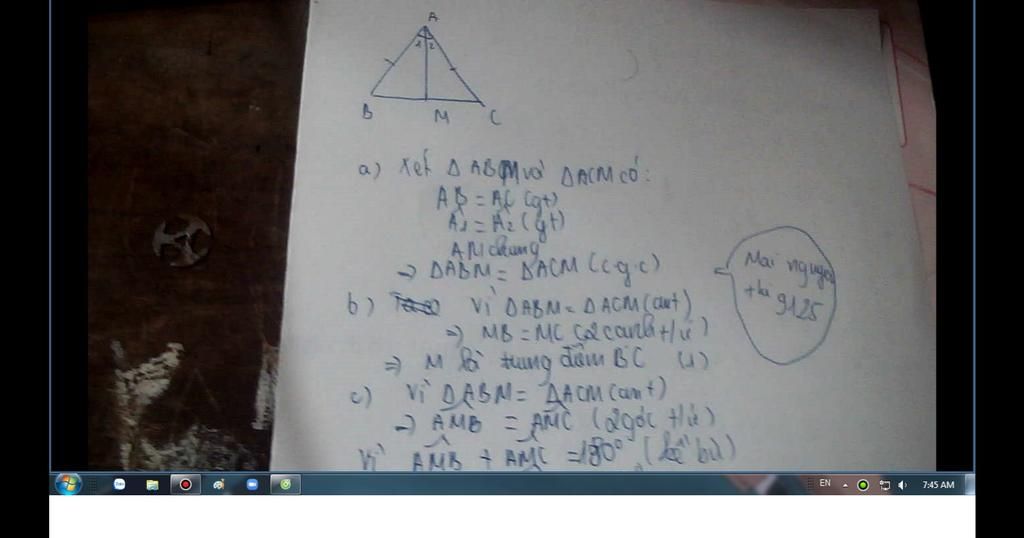 A
1 2
B M C
a) Xét ΔABM và ΔACM có:
AB = AC (gt)
Â1 = Â2 (gt)
AM chung
⇒ ΔABM = ΔACM (c.g.c)
b) Vì ΔABM = ΔACM (cmt)
⇒ MB = MC (2 cạnh t/ư)
⇒ M là trung điểm BC (1)
c) Vì ΔABM = ΔACM (cmt)
⇒ AMB = AMC (2 góc t/ư)
Vì AMB + AMC = 180° (kề bù)
Mai nguyen
thi 9125
EN 7:45 AM